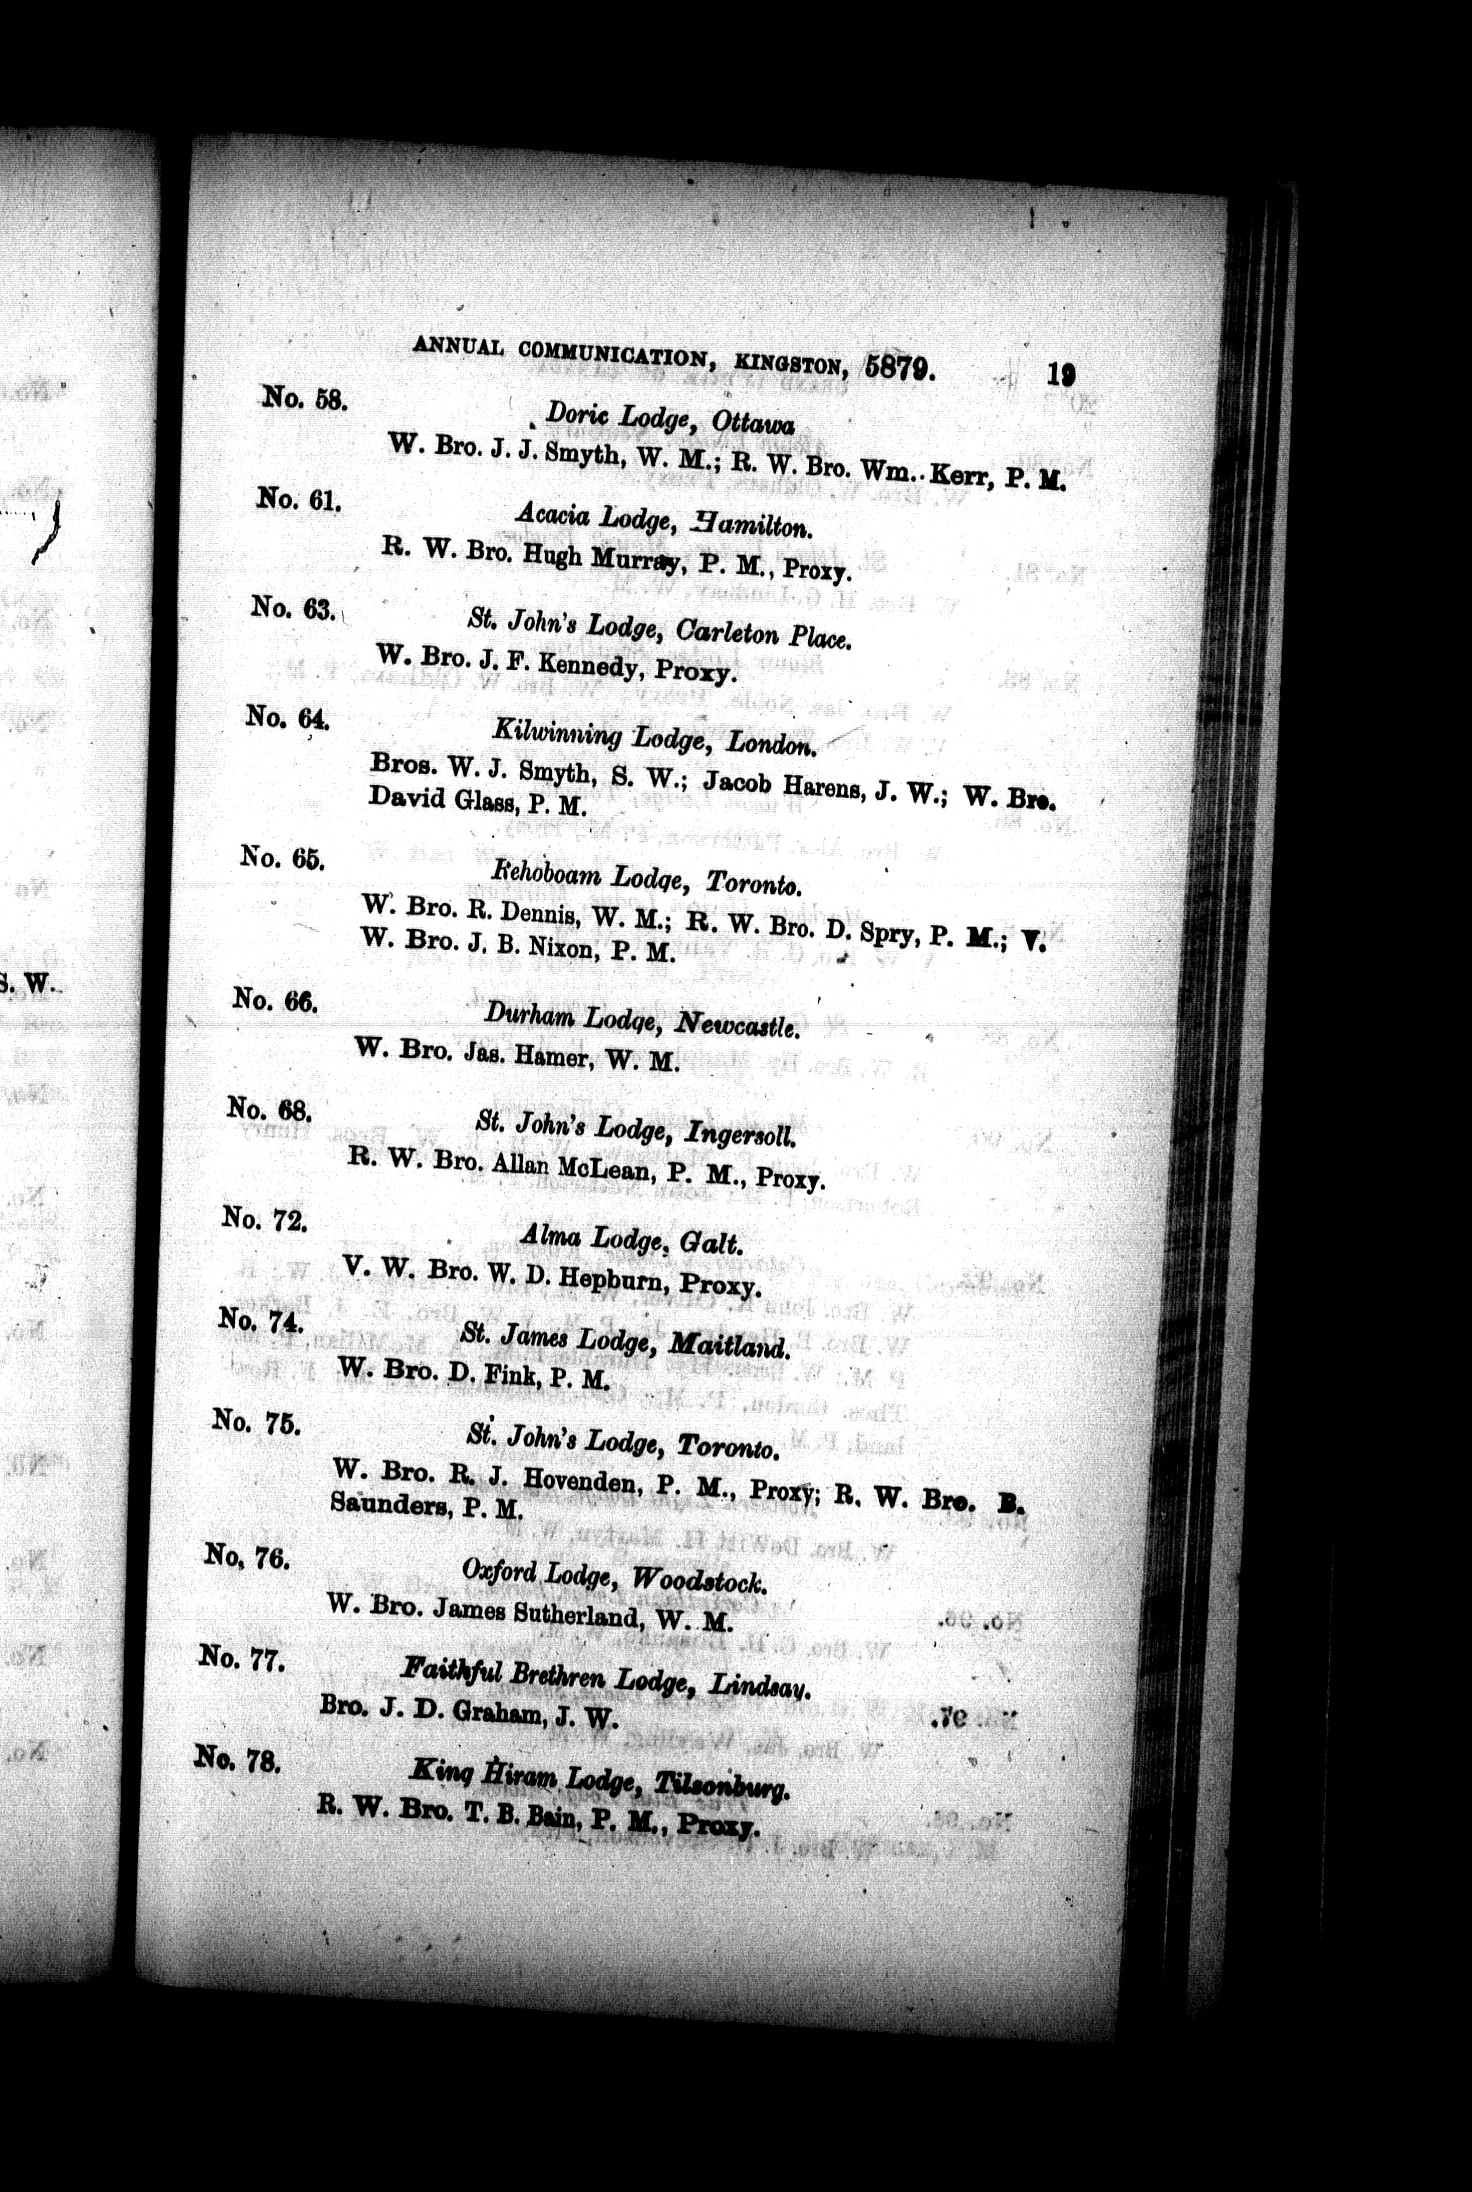 ANNUAL COMMUNICATION, KINGSTON, 5879. 19
No. 58. Doric Lodge, Ottawa
W. Bro. J. J. Smyth, W. M.; R. W. Bro. Wm. Kerr, P. M.
No. 61. Acacia Lodge, Hamilton.
R. W. Bro. Hugh Murray, P. M., Proxy.
No. 63. St. John's Lodge, Carleton Place.
W. Bro. J. F. Kennedy, Proxy.
No. 64. Kilwinning Lodge, London.
Bros. W. J. Smyth, S. W.; Jacob Harens, J. W.; W. Bro.
David Glass, P. M.
No. 65. Rehoboam Lodge, Toronto.
W. Bro. R. Dennis, W. M.; R. W. Bro. D. Spry, P. M.; V.
W. Bro. J. B. Nixon, P. M.
S. W.
No. 66. Durham Lodge, Newcastle.
W. Bro. Jas. Hamer, W. M.
No. 68. St. John's Lodge, Ingersoll.
R. W. Bro. Allan McLean, P. M., Proxy.
No. 72. Alma Lodge, Galt.
V. W. Bro. W. D. Hepburn, Proxy.
No. 74. St. James Lodge, Maitland.
W. Bro. D. Fink, P. M.
No. 75. St. John's Lodge, Toronto.
W. Bro. R. J. Hovenden, P. M., Proxy; R. W. Bro. B.
Saunders, P. M.
No. 76. Oxford Lodge, Woodstock.
W. Bro. James Sutherland, W. M.
No. 77. Faithful Brethren Lodge, Lindsay.
Bro. J. D. Graham, J. W.
No. 78. King Hiram Lodge, Tilsonburg.
R. W. Bro. T. B. Bain, P. M., Proxy.